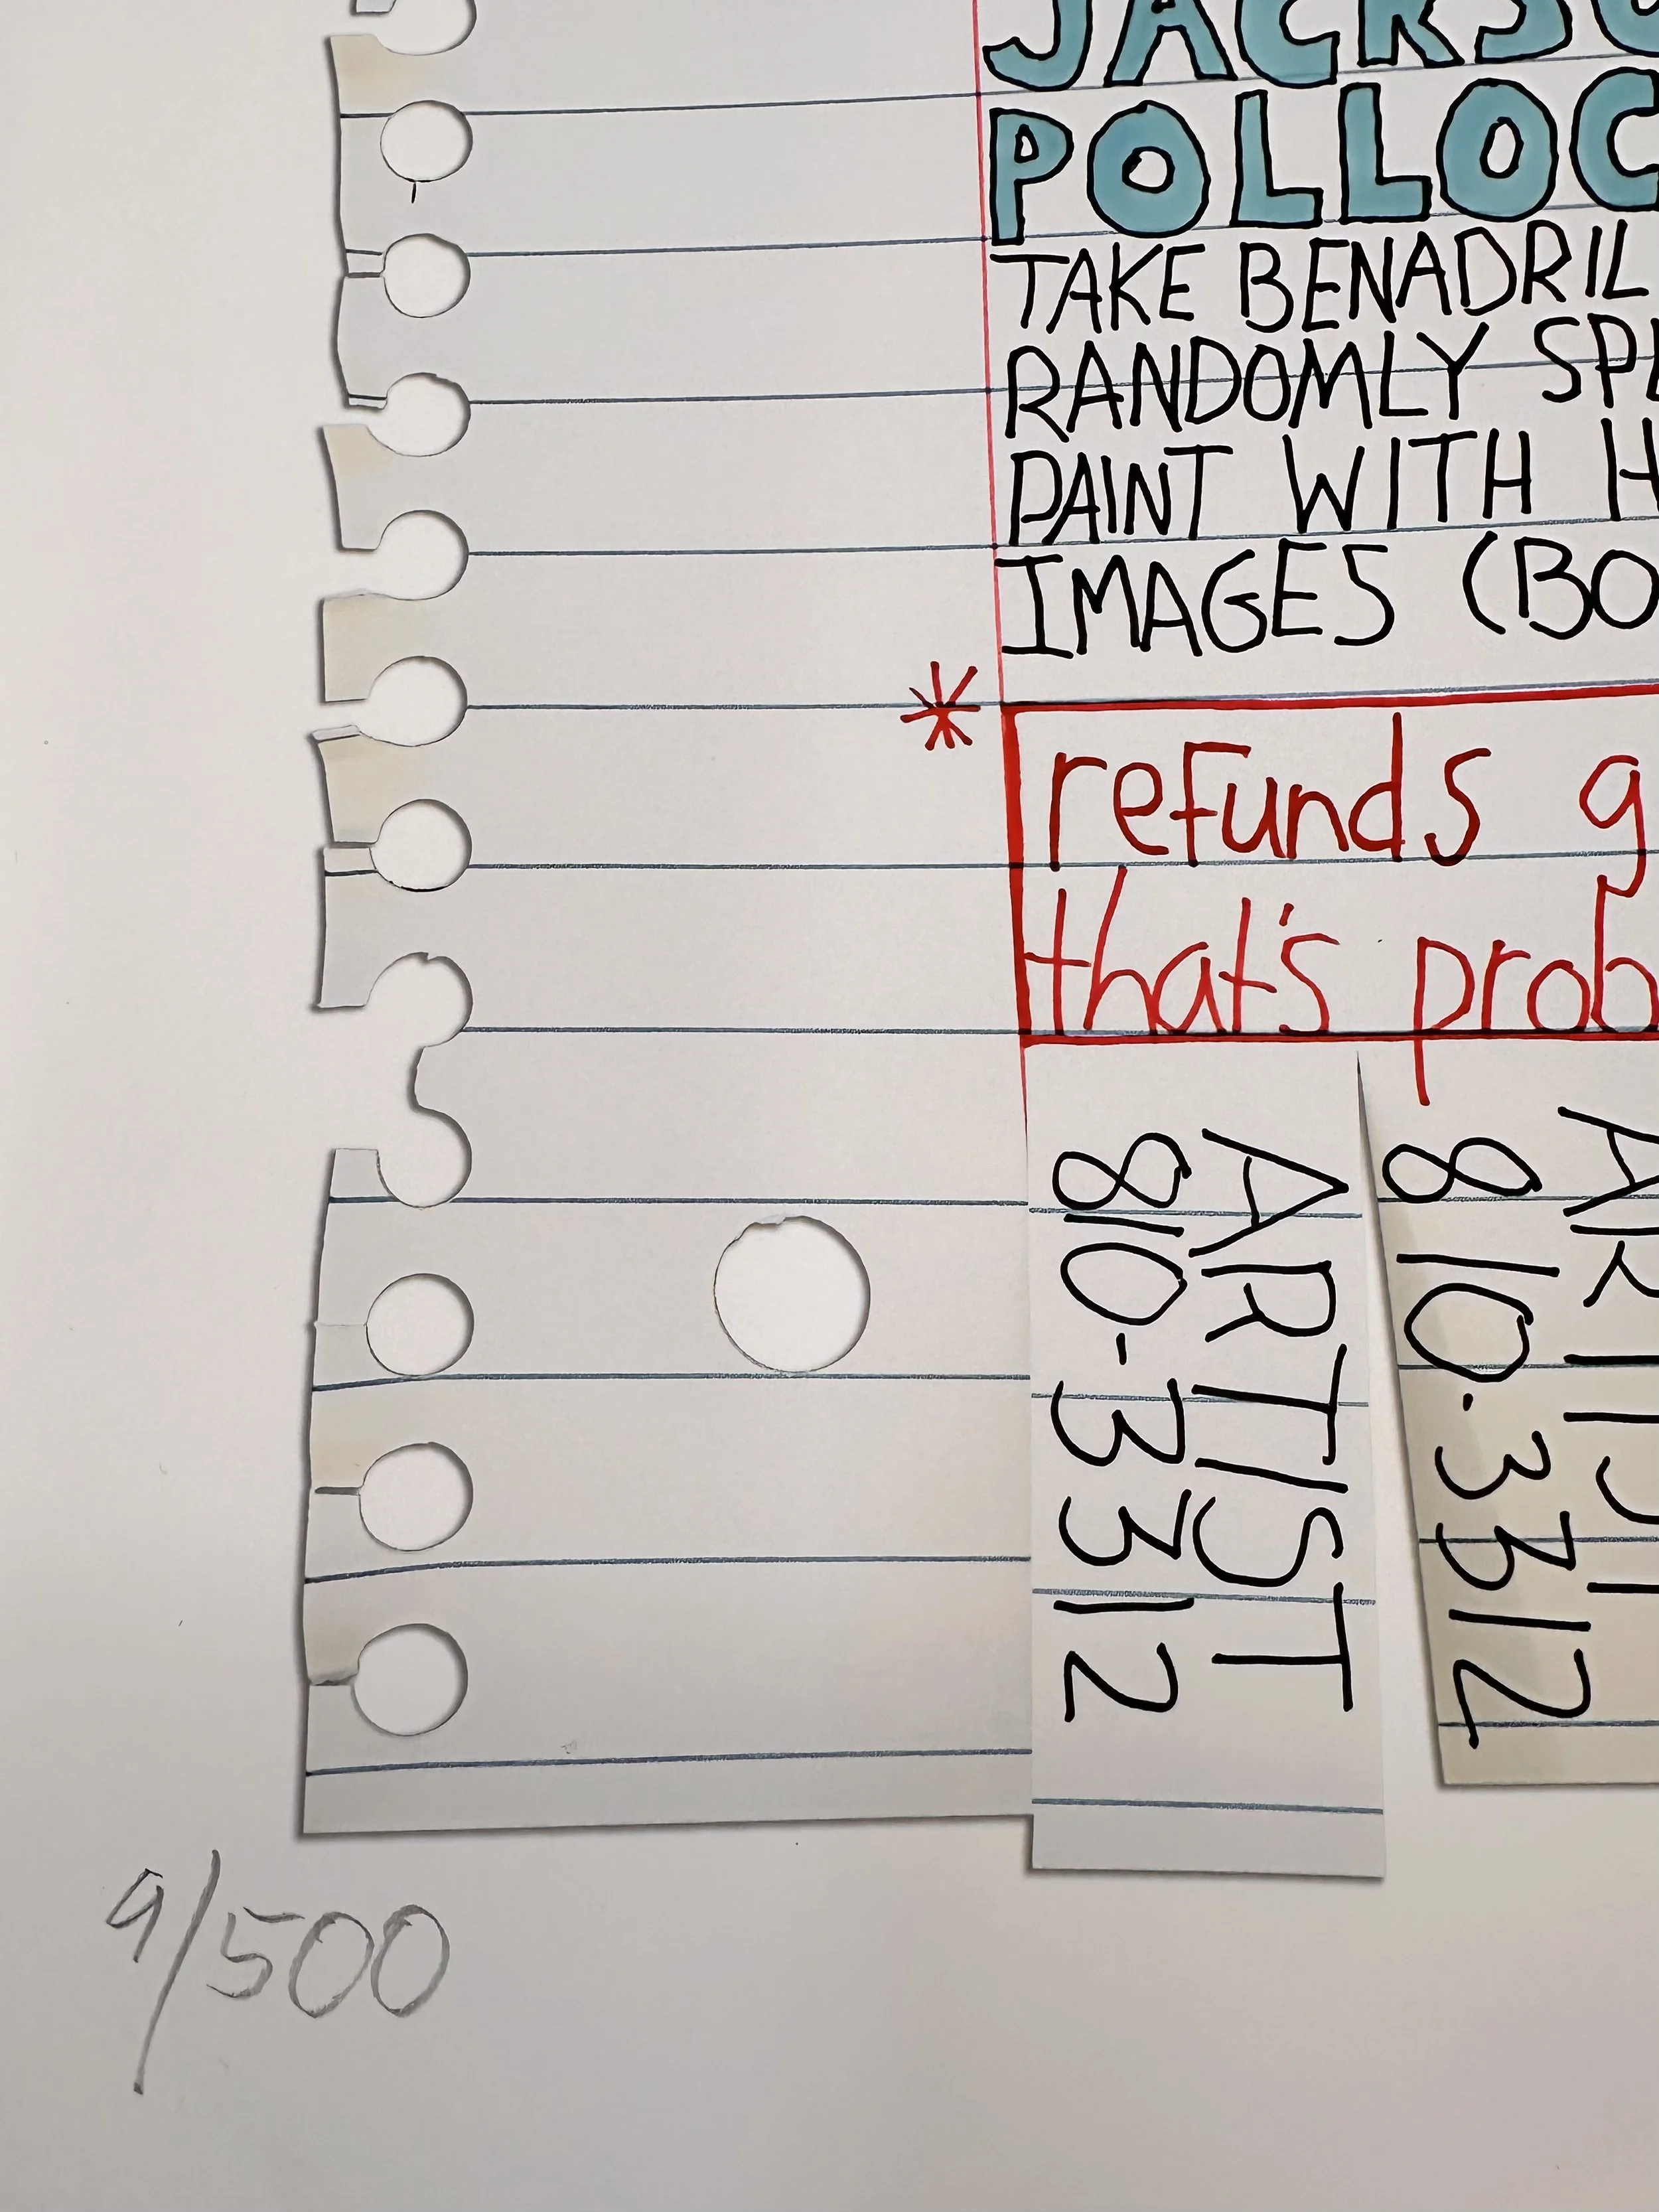 JACKSO
POLLOC
TAKE BENADRIL
RANDOMLY SPL
PAINT WITH H
IMAGES (BO
*
refunds g
that's prob
ARTIST
810-3312
ARTIST
810.3312
9/500